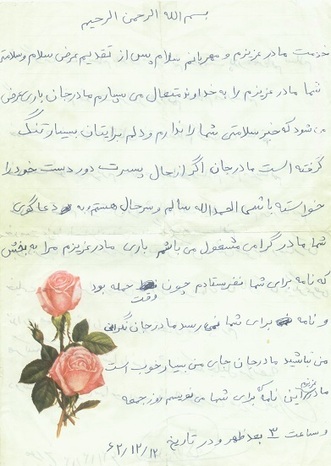 بسم الله الرحمن الرحیم
خدمت مادر عزیزم و مهربانم سلام پس از تقدیم عرض سلام و سلامتی
شما مادر عزیزم را به خداوند متعال می سپارم مادر جان باری عرض
می شود که خبر سلامتی شما را ندارم و دلم برایتان بسیار تنگ
گرفته است مادر جان اگر از حال پسرت دور دست خود را
خواسته باشی الحمد الله سالم و سرحال هستم به دعاگوی
شما مادر گرامی مشغول می باشم باری مادر عزیزم مرا به بخش
که نامه برای شما نفرستادم چون وقت حمله بود
و نامه برای شما نمی رسد مادر جان نگران
من نباشید مادر جان جای من بسیار خوب است
مادر عزیزم این نامه که برای شما می نویسم روز جمعه
و ساعت ۳ بعد ظهر و در تاریخ ۶۲/۱۲/۱۲